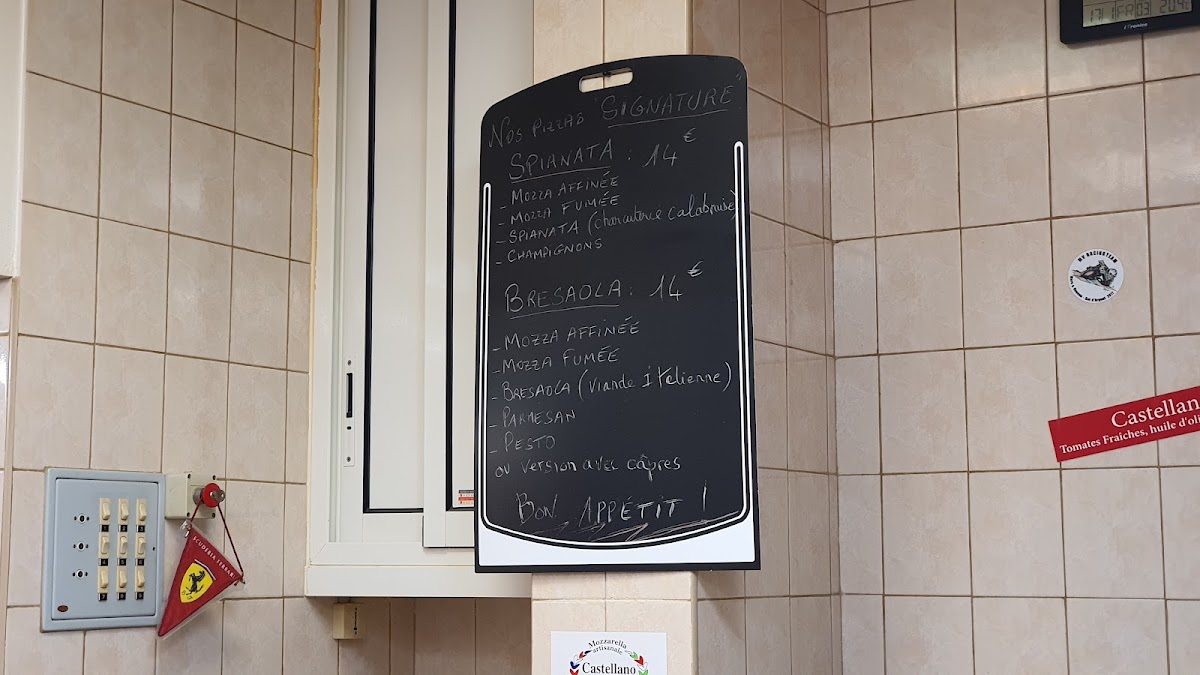 Nos Pizzas SIGNATURE
SPIANATA : 14 €
- MOZZA AFFINÉE
- MOZZA FUMÉE
- SPIANATA (charcuterie calabraise)
- CHAMPIGNONS
BRESAOLA : 14 €
- MOZZA AFFINÉE
- MOZZA FUMÉE
- BRESAOLA (viande italienne)
- PARMESAN
- PESTO
ou version avec câpres
BON APPÉTIT !
SCUDERIA FERRARI
Mozzarella
artisanale
Castellano
Castellan
Tomates Fraîches, huile d'oli